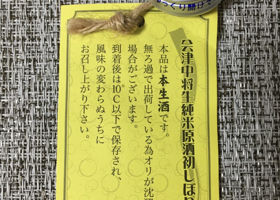 会津中将生純米原酒初しぼり
本品は本生酒です。
無ろ過で出荷している為オリが沈
場合がございます。
到着後は10℃以下で保存され、
風味の変わらぬうちに
お召し上がり下さい。